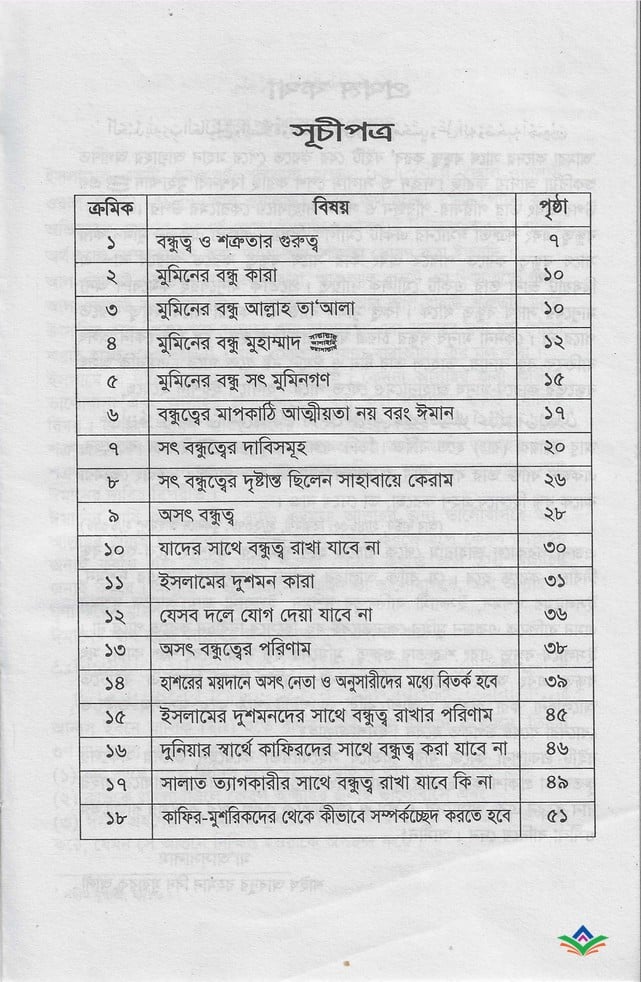 সূচীপত্র
ক্রমিক বিষয় পৃষ্ঠা
১ বন্ধুত্ব ও শত্রুতার গুরুত্ব ৭
২ মুমিনের বন্ধু কারা ১০
৩ মুমিনের বন্ধু আল্লাহ তা‘আলা ১০
৪ মুমিনের বন্ধু মুহাম্মাদ ১২
৫ মুমিনের বন্ধু সৎ মুমিনগণ ১৫
৬ বন্ধুত্বের মাপকাঠি আত্মীয়তা নয় বরং ঈমান ১৭
৭ সৎ বন্ধুত্বের দাবিসমূহ ২০
৮ সৎ বন্ধুত্বের দৃষ্টান্ত ছিলেন সাহাবায়ে কেরাম ২৬
৯ অসৎ বন্ধুত্ব ২৮
১০ যাদের সাথে বন্ধুত্ব রাখা যাবে না ৩০
১১ ইসলামের দুশমন কারা ৩১
১২ যেসব দলে যোগ দেয়া যাবে না ৩৬
১৩ অসৎ বন্ধুত্বের পরিণাম ৩৮
১৪ হাশরের ময়দানে অসৎ নেতা ও অনুসারীদের মধ্যে বিতর্ক হবে ৩৯
১৫ ইসলামের দুশমনদের সাথে বন্ধুত্ব রাখার পরিণাম ৪৫
১৬ দুনিয়ার স্বার্থে কাফিরদের সাথে বন্ধুত্ব করা যাবে না ৪৬
১৭ সালাত ত্যাগকারীর সাথে বন্ধুত্ব রাখা যাবে কি না ৪৯
১৮ কাফির-মুশরিকদের থেকে কীভাবে সম্পর্কচ্ছেদ করতে হবে ৫১